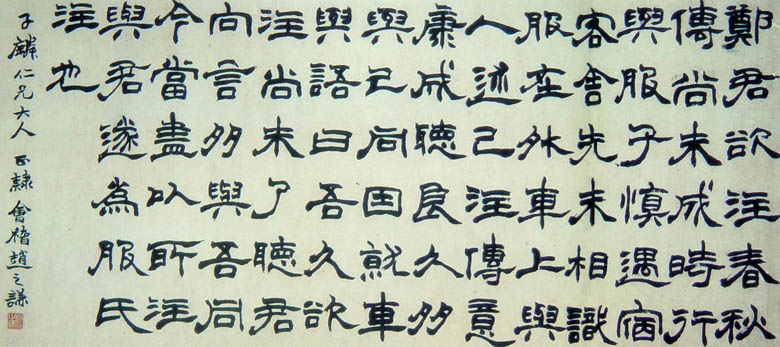 鄭君欲注春秋
傳尚未成時行
與服子慎遇宿
客舍先未相識
服在外車上與
人述己注傳意
康成聽良久多
與己同因就車
與語曰吾久欲
注尚未了聽君
向言多與吾同
今當盡以所注
與君遂為服氏
注也
子鱗仁兄大人 正隸 會稽趙之謙